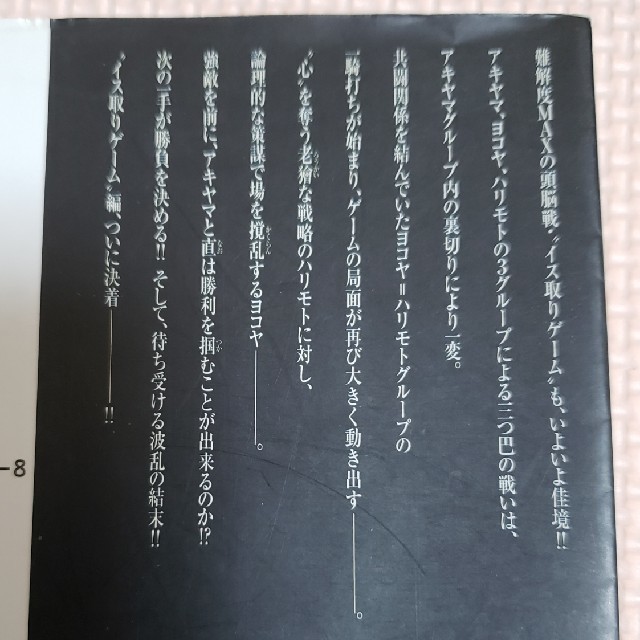 難解度MAXの頭脳戦〝イス取りゲーム〟も、いよいよ佳境!!
アキヤマ、ヨコヤ、ハリモトの3グループによる三つ巴の戦いは、
アキヤマグループ内の裏切りにより一変。
共闘関係を結んでいたヨコヤ=ハリモトグループの
一騎打ちが始まり、ゲームの局面が再び大きく動き出す———。
〝心〟を奪う老獪な戦略のハリモトに対し、
論理的な策謀で場を撹乱するヨコヤ———。
強敵を前に、アキヤマと直は勝利を掴むことが出来るのか!?
次の一手が勝負を決める!! そして、待ち受ける波乱の結末!!
〝イス取りゲーム〟編、ついに決着———!!
-8